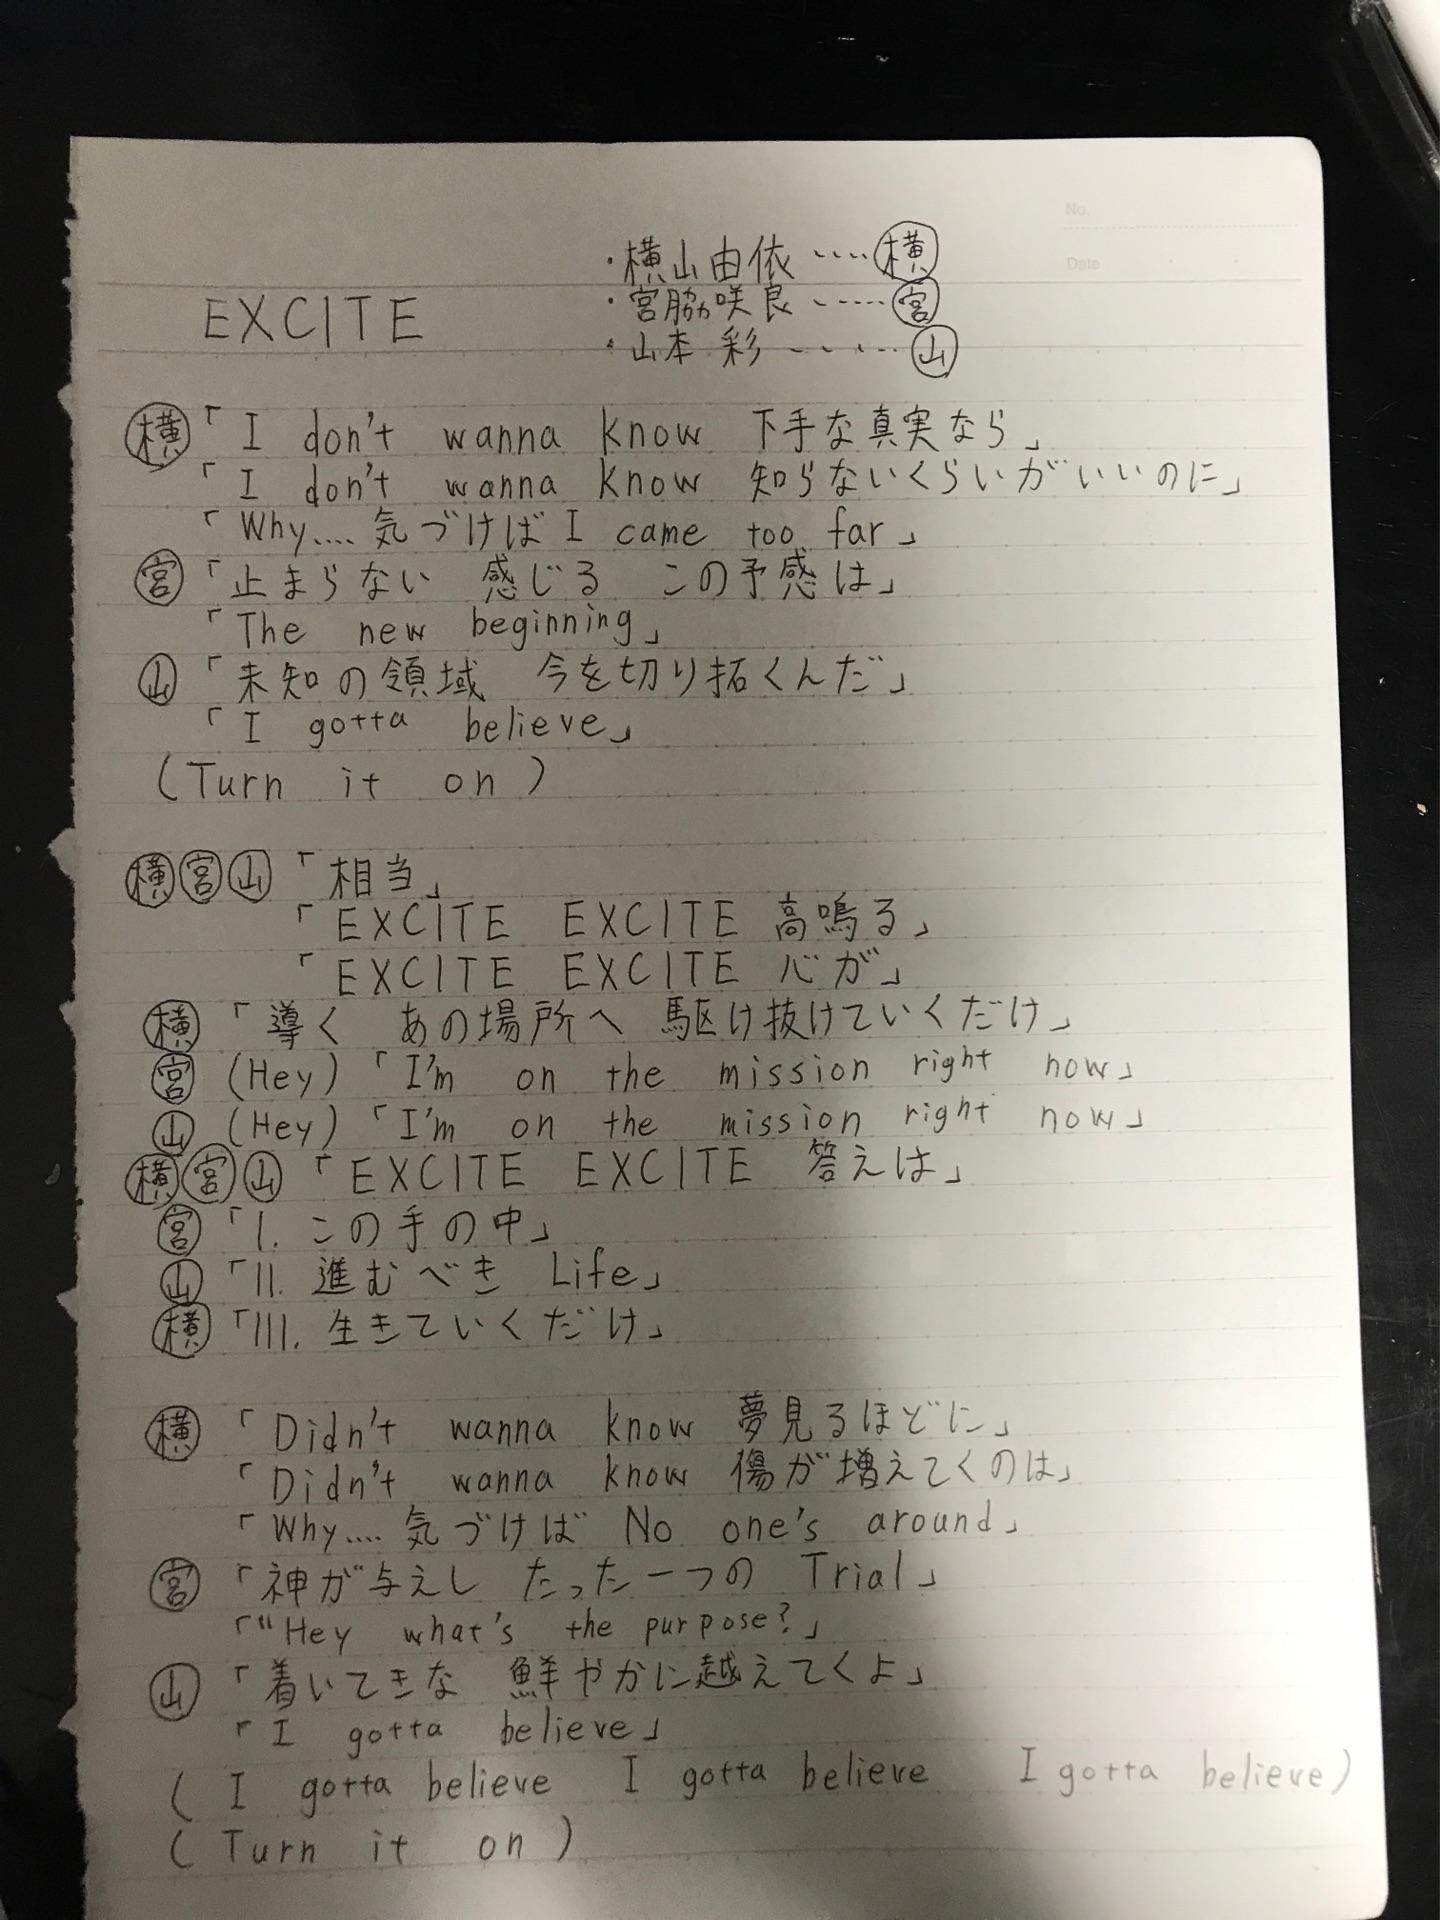 No.
Date
EXCITE
・横山由依‥‥㊢横
・宮脇咲良‥‥‥宮
・山本 彩‥‥‥山
横「I don't wanna know 下手な真実なら」
「I don't wanna know 知らないくらいがいいのに」
「Why.... 気づけば I came too far」
宮「止まらない 感じる この予感は」
「The new beginning」
山「未知の領域 今を切り拓くんだ」
「I gotta believe」
(Turn it on)
横宮山「相当」
「EXCITE EXCITE 高鳴る」
「EXCITE EXCITE 心が」
横「導く あの場所へ 駆け抜けていくだけ」
宮 (Hey)「I'm on the mission right now」
山 (Hey)「I'm on the mission right now」
横宮山「EXCITE EXCITE 答えは」
宮「I. この手の中」
山「II. 進むべき Life」
横「III. 生きていくだけ」
横「Didn't wanna know 夢見るほどに」
「Didn't wanna know 傷が増えてくのは」
「Why.... 気づけば No one's around」
宮「神が与えし たった一つの Trial」
「"Hey what's the purpose?」
山「着いてきな 鮮やかに越えてくよ」
「I gotta believe」
(I gotta believe I gotta believe I gotta believe)
(Turn it on)